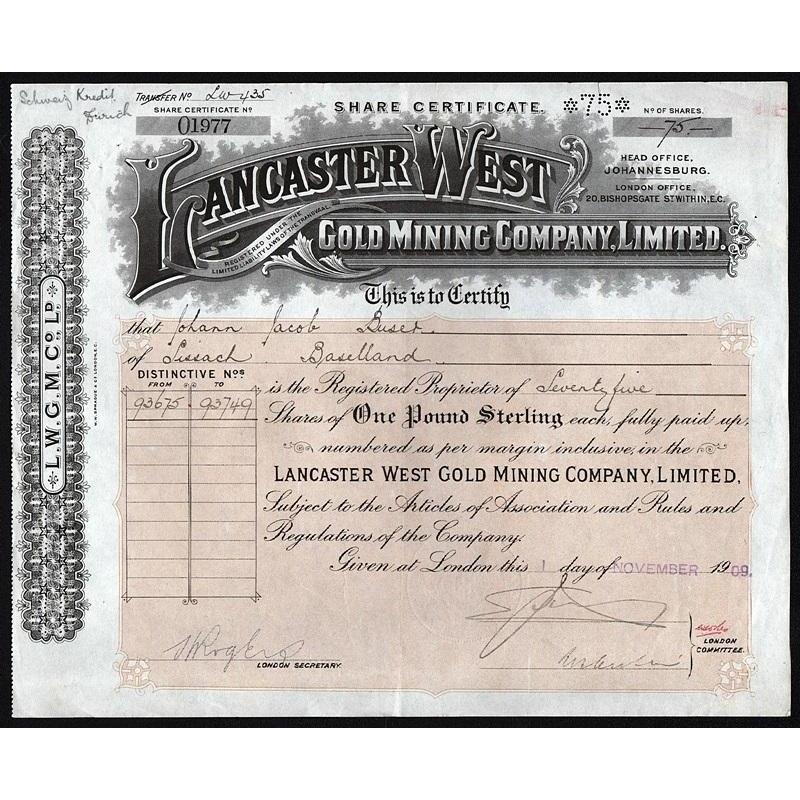 Schweiz Kredit
Zürich
TRANSFER No LW 435
SHARE CERTIFICATE No
01977
SHARE CERTIFICATE.
*75*
No OF SHARES.
—75—
HEAD OFFICE,
JOHANNESBURG.
LONDON OFFICE,
20, BISHOPSGATE ST WITHIN, E.C.
LANCASTER WEST
REGISTERED UNDER THE
LIMITED LIABILITY LAWS OF THE TRANSVAAL.
GOLD MINING COMPANY, LIMITED.
This is to Certify
that Johann Jacob Buser
of Sissach Baselland
DISTINCTIVE Nos
FROM TO
93675 . 93749
is the Registered Proprietor of Seventy five
Shares of One Pound Sterling each, fully paid up,
numbered as per margin inclusive, in the
LANCASTER WEST GOLD MINING COMPANY, LIMITED,
Subject to the Articles of Association and Rules and
Regulations of the Company.
Given at London this 1 day of NOVEMBER 1909.
LONDON SECRETARY.
LONDON
COMMITTEE.
L.W.G.M. Co. LD.
W.W. SPRAGUE & Co LONDON, E.C.